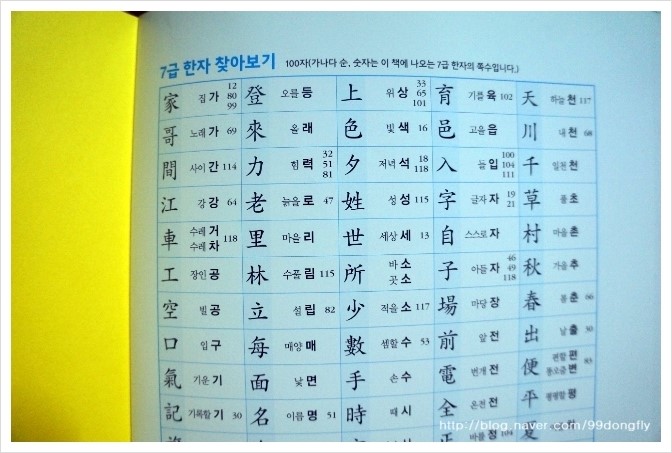 7급 한자 찾아보기 100자(가나다 순, 숫자는 이 책에 나오는 7급 한자의 쪽수입니다.)
家 집 가 12 80 99 登 오를 등 上 위 상 33 65 101 育 기를 육 102 天 하늘 천 117
哥 노래 가 69 來 올 래 色 빛 색 16 邑 고을 읍 川 내 천 68
間 사이 간 114 力 힘 력 32 51 81 夕 저녁 석 18 118 入 들 입 100 104 111 千 일천 천
江 강 강 64 老 늙을 로 47 姓 성 성 115 字 글자 자 19 21 草 풀 초
車 수레 거 수레 차 118 里 마을 리 世 세상 세 13 自 스스로 자 村 마을 촌
工 장인 공 林 수풀 림 115 所 바 소 곳 소 子 아들 자 46 49 118 秋 가을 추
空 빌 공 立 설 립 82 少 적을 소 117 場 마당 장 春 봄 춘 66
口 입 구 每 매양 매 數 셈할 수 53 前 앞 전 出 날 출 30
氣 기운 기 面 낯 면 手 손 수 電 번개 전 便 편할 편 똥오줌 변
記 기록할 기 30 名 이름 명 51 時 때 시 全 온전 전 平 평평할 평
正 바를 정 104 夏
http://blog.naver.com/99dongfly